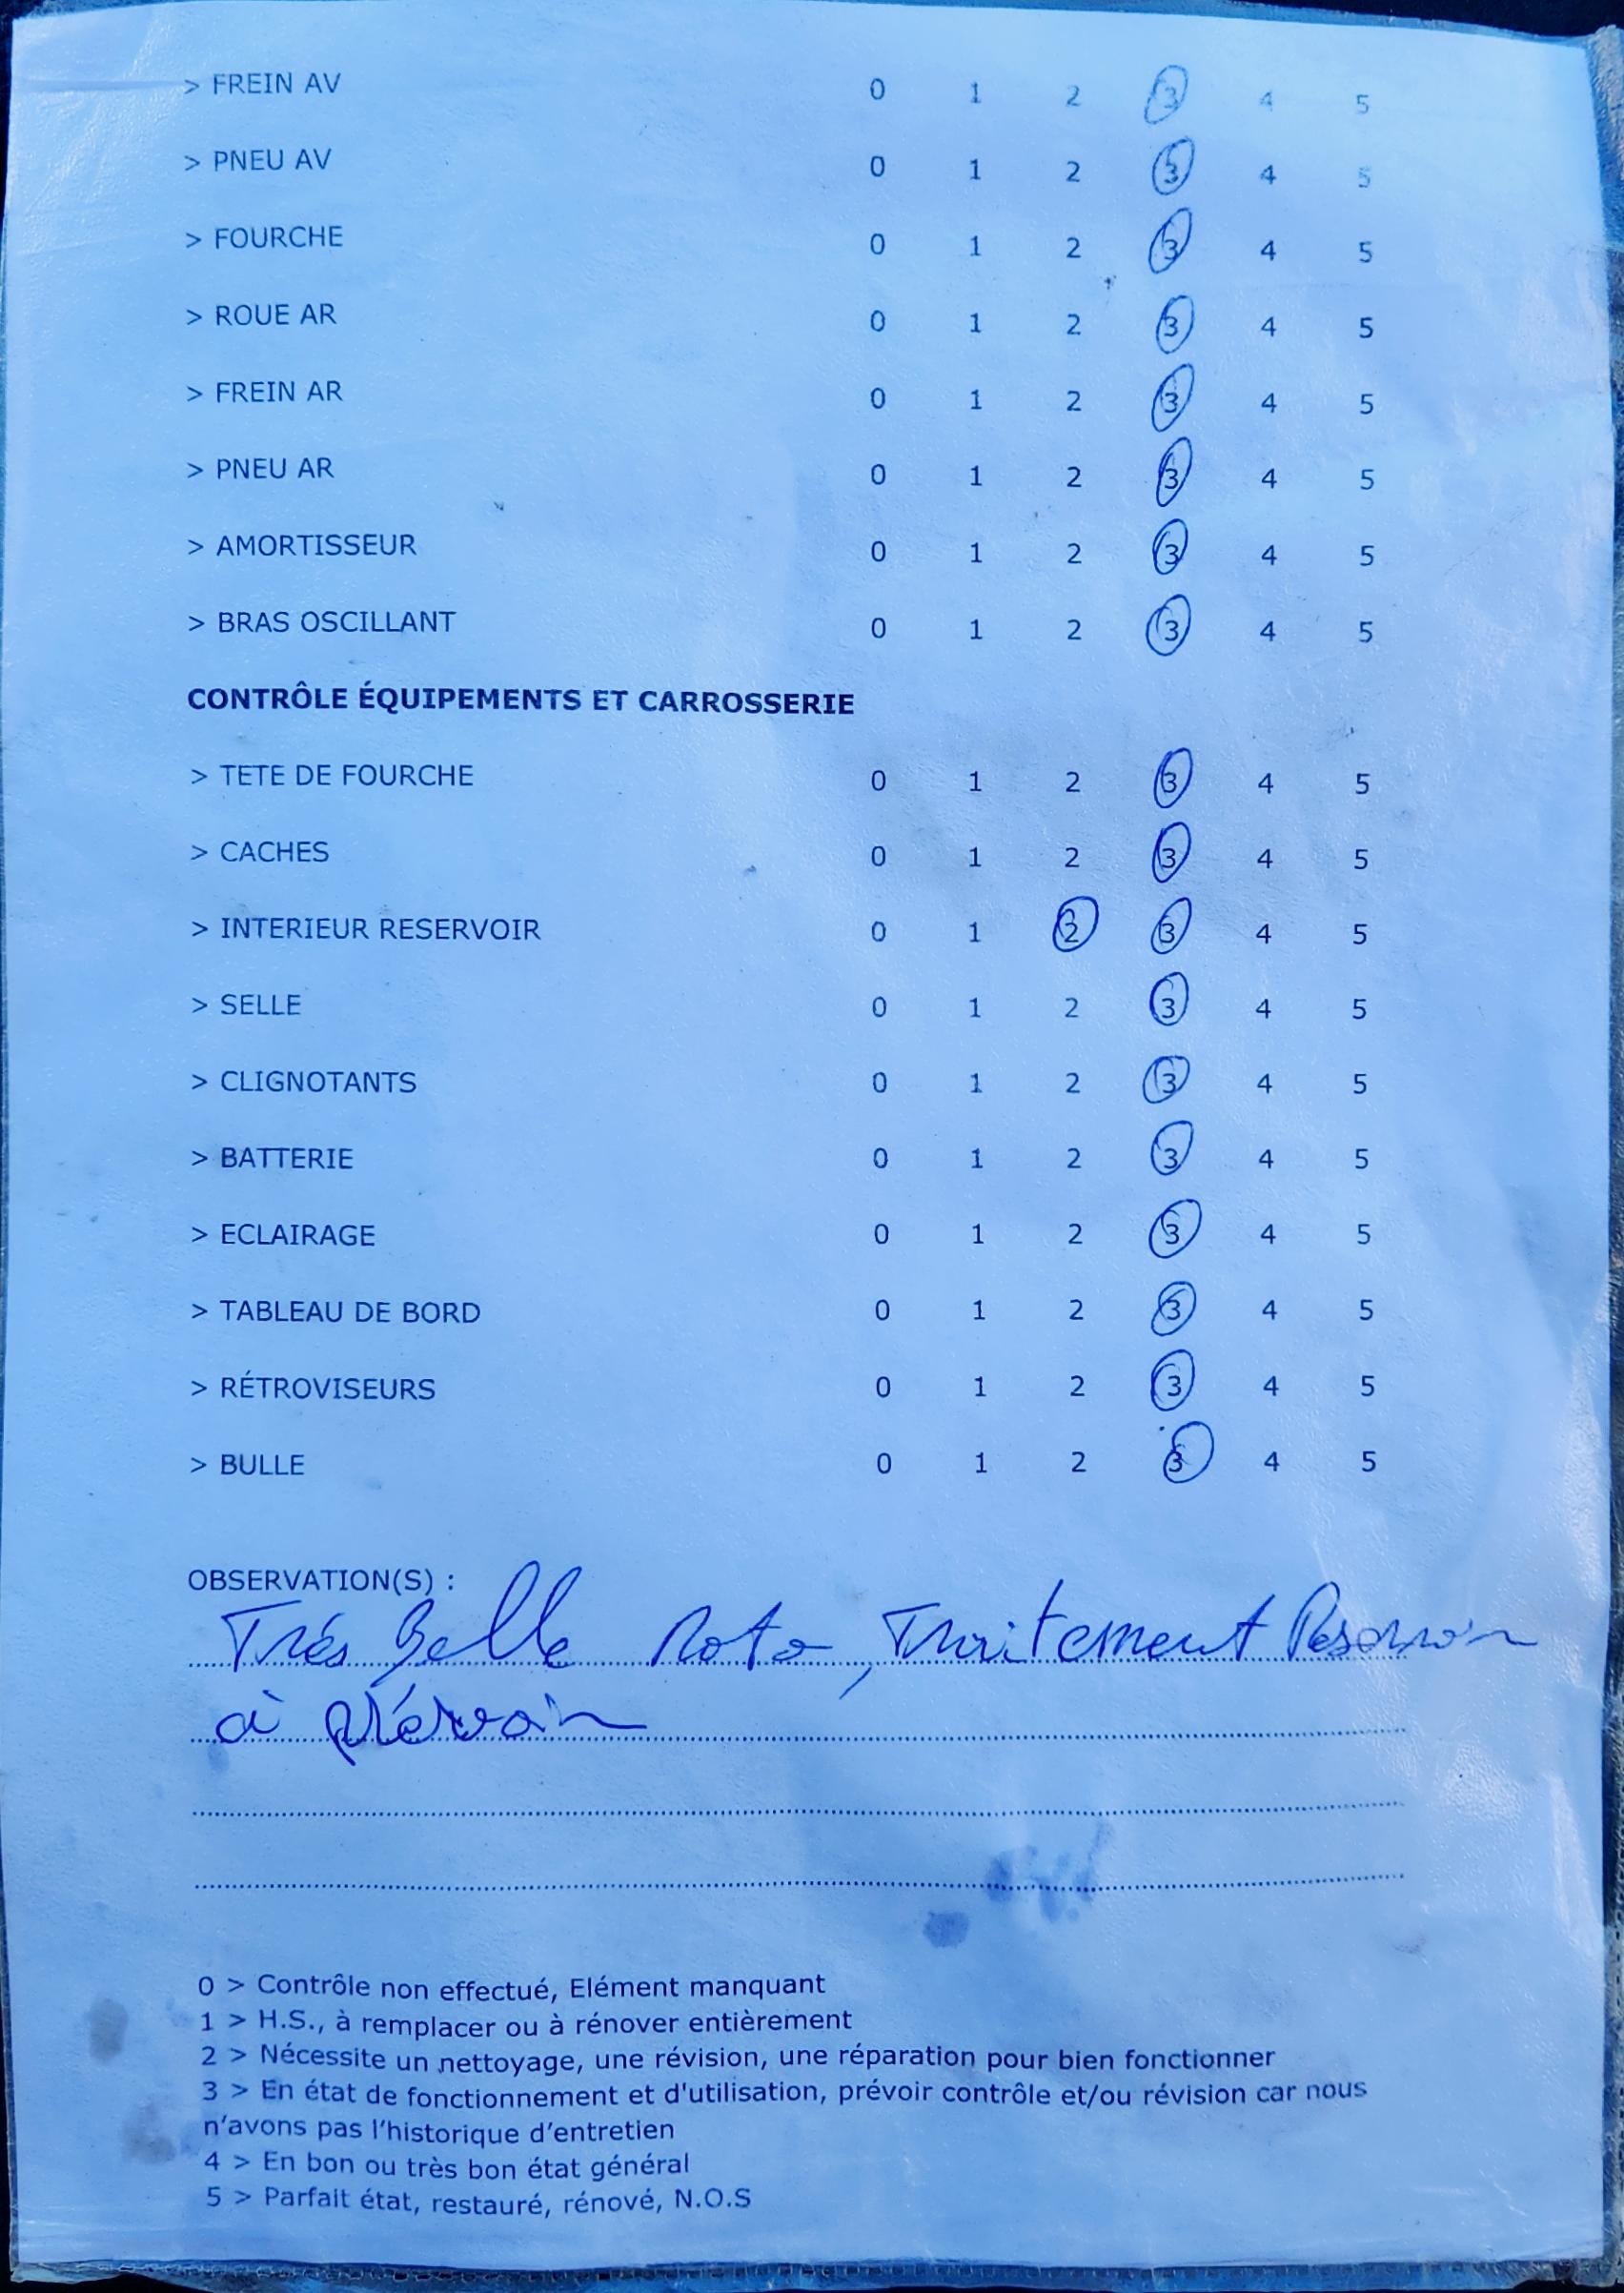 > FREIN AV 0 1 2 3 4 5
> PNEU AV 0 1 2 3 4 5
> FOURCHE 0 1 2 3 4 5
> ROUE AR 0 1 2 3 4 5
> FREIN AR 0 1 2 3 4 5
> PNEU AR 0 1 2 3 4 5
> AMORTISSEUR 0 1 2 3 4 5
> BRAS OSCILLANT 0 1 2 3 4 5
CONTRÔLE ÉQUIPEMENTS ET CARROSSERIE
> TETE DE FOURCHE 0 1 2 3 4 5
> CACHES 0 1 2 3 4 5
> INTERIEUR RESERVOIR 0 1 2 3 4 5
> SELLE 0 1 2 3 4 5
> CLIGNOTANTS 0 1 2 3 4 5
> BATTERIE 0 1 2 3 4 5
> ECLAIRAGE 0 1 2 3 4 5
> TABLEAU DE BORD 0 1 2 3 4 5
> RÉTROVISEURS 0 1 2 3 4 5
> BULLE 0 1 2 3 4 5
OBSERVATION(S) :
Très Belle Moto, Traitement
à prévoir
0 > Contrôle non effectué, Elément manquant
1 > H.S., à remplacer ou à rénover entièrement
2 > Nécessite un nettoyage, une révision, une réparation pour bien fonctionner
3 > En état de fonctionnement et d'utilisation, prévoir contrôle et/ou révision car nous
n'avons pas l'historique d'entretien
4 > En bon ou très bon état général
5 > Parfait état, restauré, rénové, N.O.S